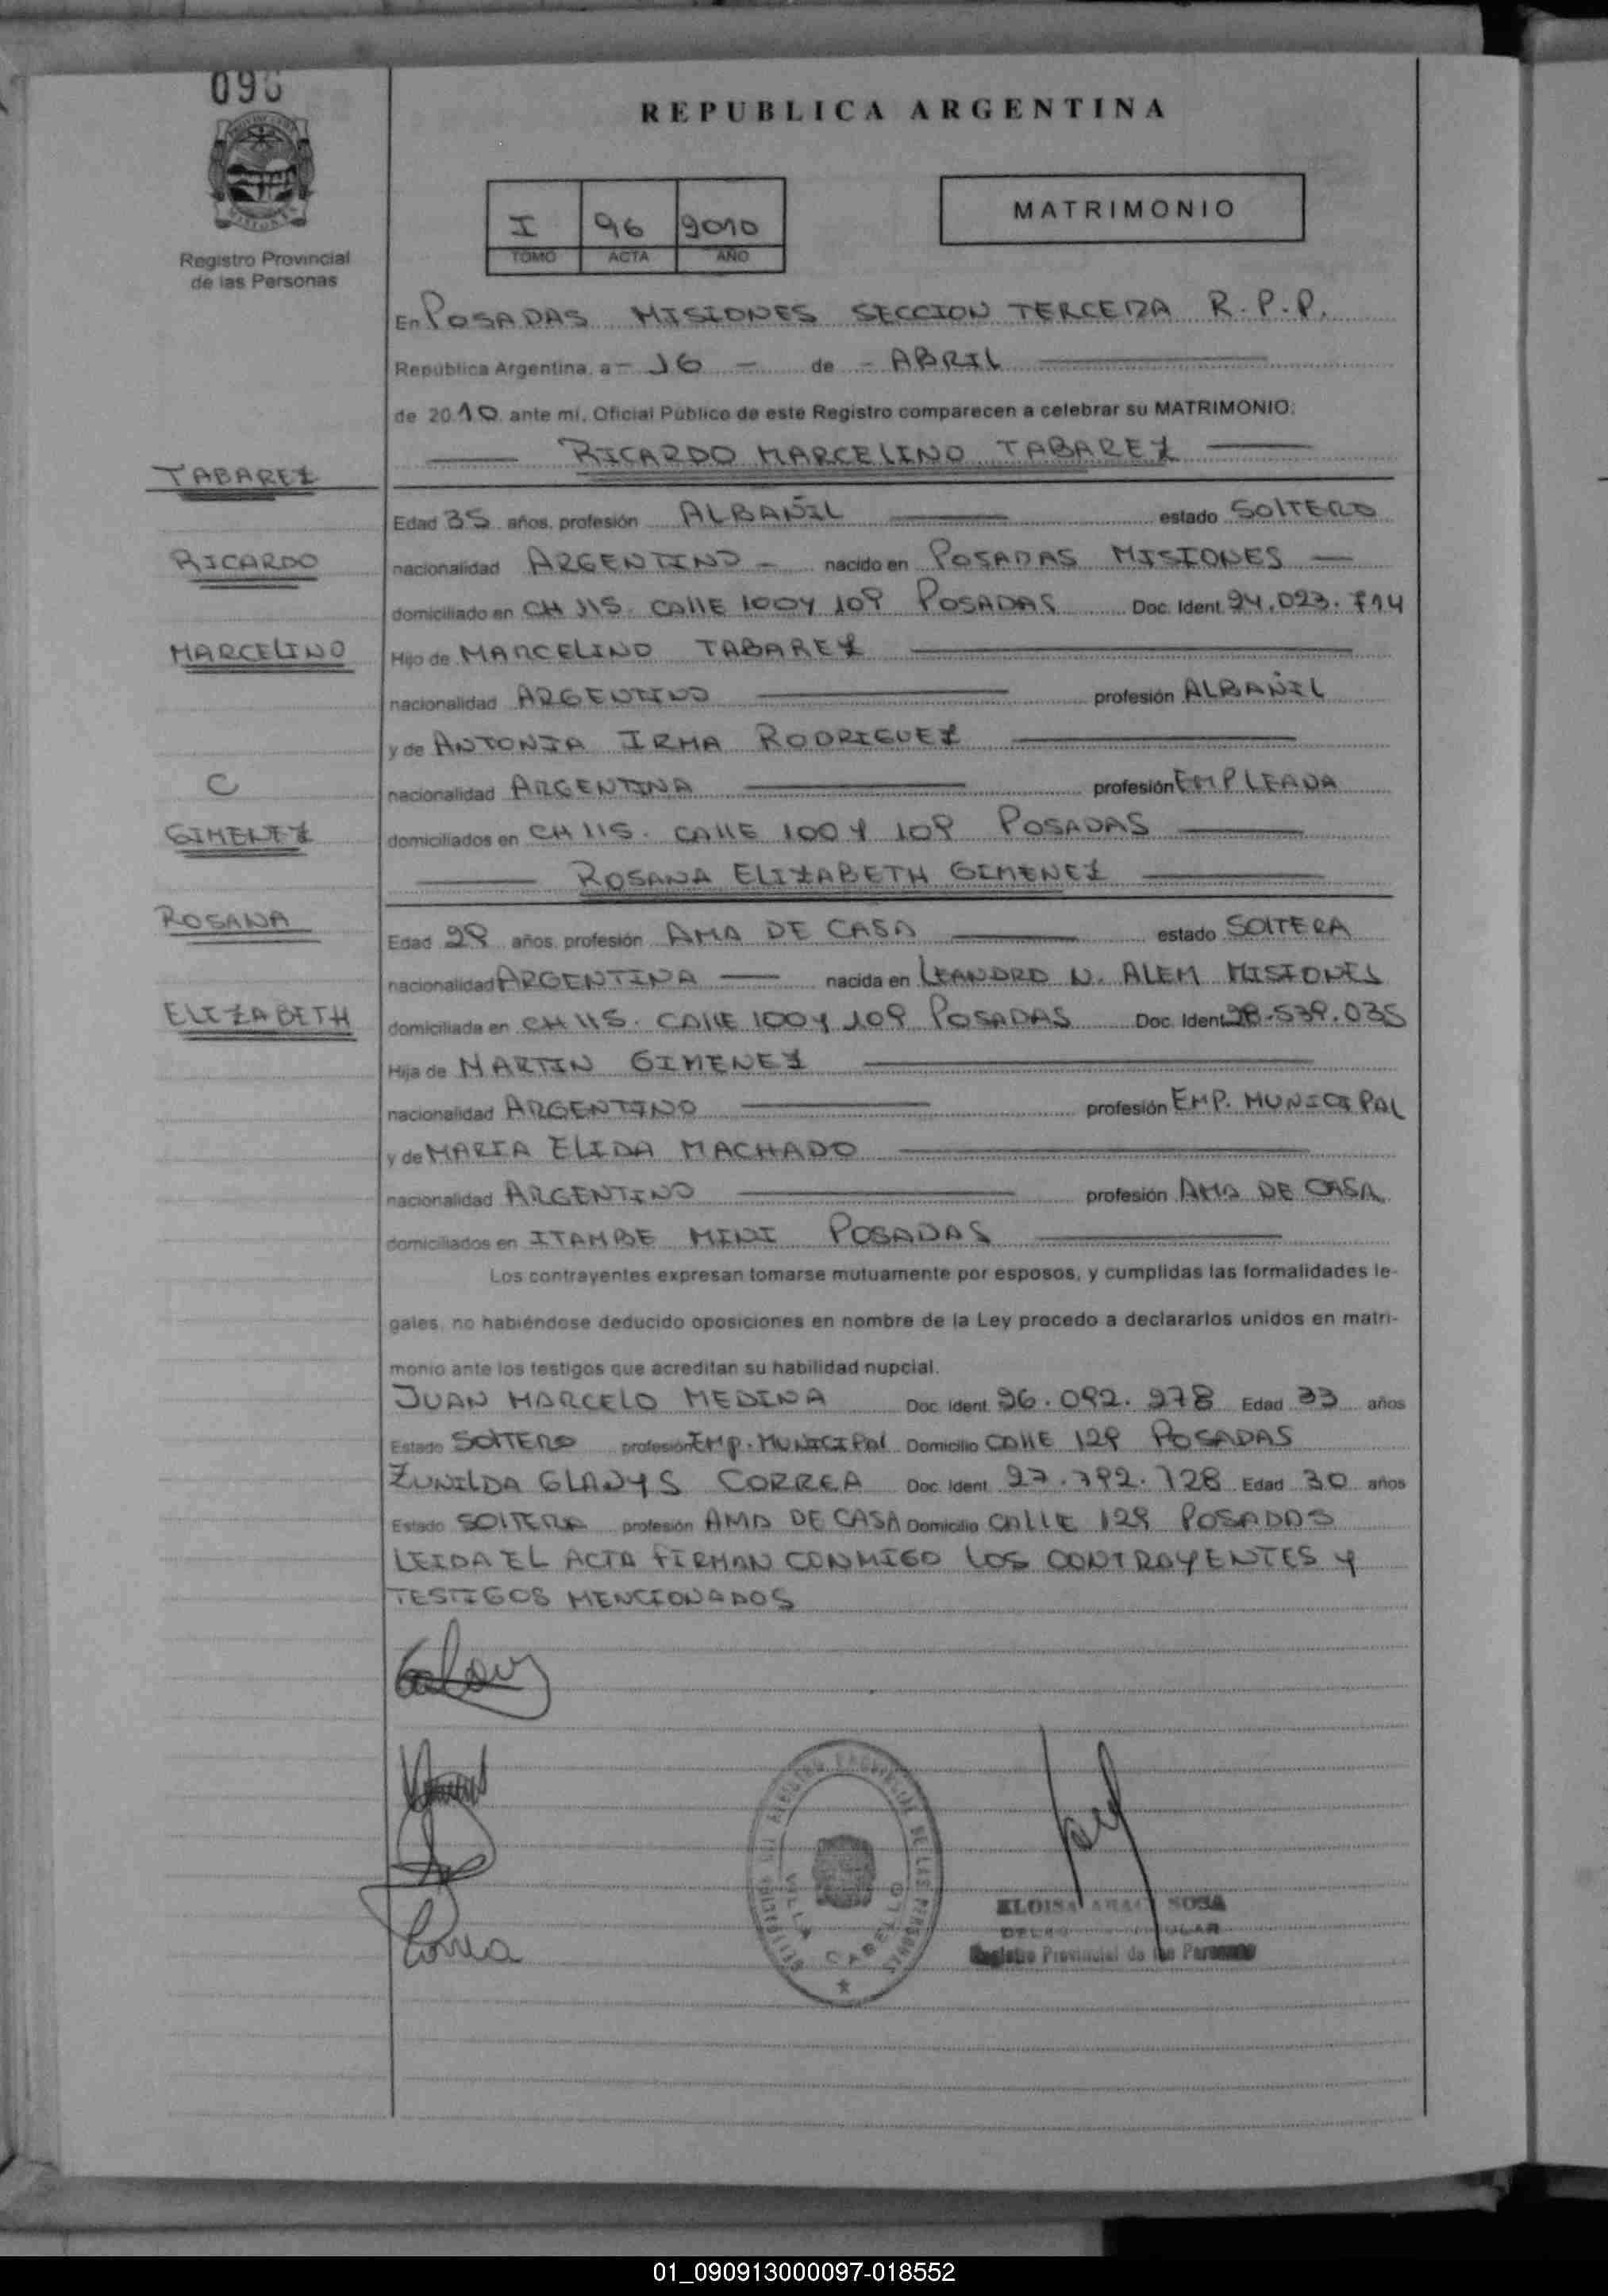 096
REPUBLICA ARGENTINA
I 96 2010
TOMO ACTA AÑO
MATRIMONIO
Registro Provincial
de las Personas
En POSADAS MISIONES SECCION TERCERA R.P.P.
República Argentina, a - 16 - de - ABRIL
de 2010 ante mí, Oficial Público de este Registro comparecen a celebrar su MATRIMONIO:
RICARDO MARCELINO TABAREZ
TABAREZ
Edad 35 años, profesión ALBAÑIL estado SOLTERO
RICARDO
nacionalidad ARGENTINO - nacido en POSADAS MISIONES
domiciliado en CH 115. CALLE 100 Y 109 POSADAS Doc. Ident. 24.023.714
MARCELINO
Hijo de MARCELINO TABAREZ
nacionalidad ARGENTINO profesión ALBAÑIL
y de ANTONIA IRMA RODRIGUEZ
C
nacionalidad ARGENTINA profesión EMPLEADA
GIMENEZ
domiciliados en CH 115. CALLE 100 Y 109 POSADAS
ROSANA ELIZABETH GIMENEZ
ROSANA
Edad 29 años, profesión AMA DE CASA estado SOLTERA
nacionalidad ARGENTINA nacida en LEANDRO N. ALEM MISIONES
ELIZABETH
domiciliada en CH 115. CALLE 100 Y 109 POSADAS Doc. Ident. 28.539.035
Hija de MARTIN GIMENEZ
nacionalidad ARGENTINO profesión EMP. MUNICIPAL
y de MARIA ELIDA MACHADO
nacionalidad ARGENTINO profesión AMA DE CASA
domiciliados en ITAMBE MINI POSADAS
Los contrayentes expresan tomarse mutuamente por esposos, y cumplidas las formalidades le-
gales, no habiéndose deducido oposiciones en nombre de la Ley procedo a declararlos unidos en matri-
monio ante los testigos que acreditan su habilidad nupcial.
JUAN MARCELO MEDINA Doc. Ident. 26.092.278 Edad 33 años
Estado SOLTERO profesión EMP. MUNICIPAL Domicilio CALLE 129 POSADAS
ZUNILDA GLADYS CORREA Doc. Ident. 27.792.728 Edad 30 años
Estado SOLTERA profesión AMA DE CASA Domicilio CALLE 129 POSADAS
LEIDA EL ACTA FIRMAN CONMIGO LOS CONTRAYENTES Y
TESTIGOS MENCIONADOS
REGISTRO PROVINCIAL DE LAS PERSONAS
VILLA CABELLO
Correa
ELOISA SOSA
Registro Provincial de las Personas
01_090913000097-018552